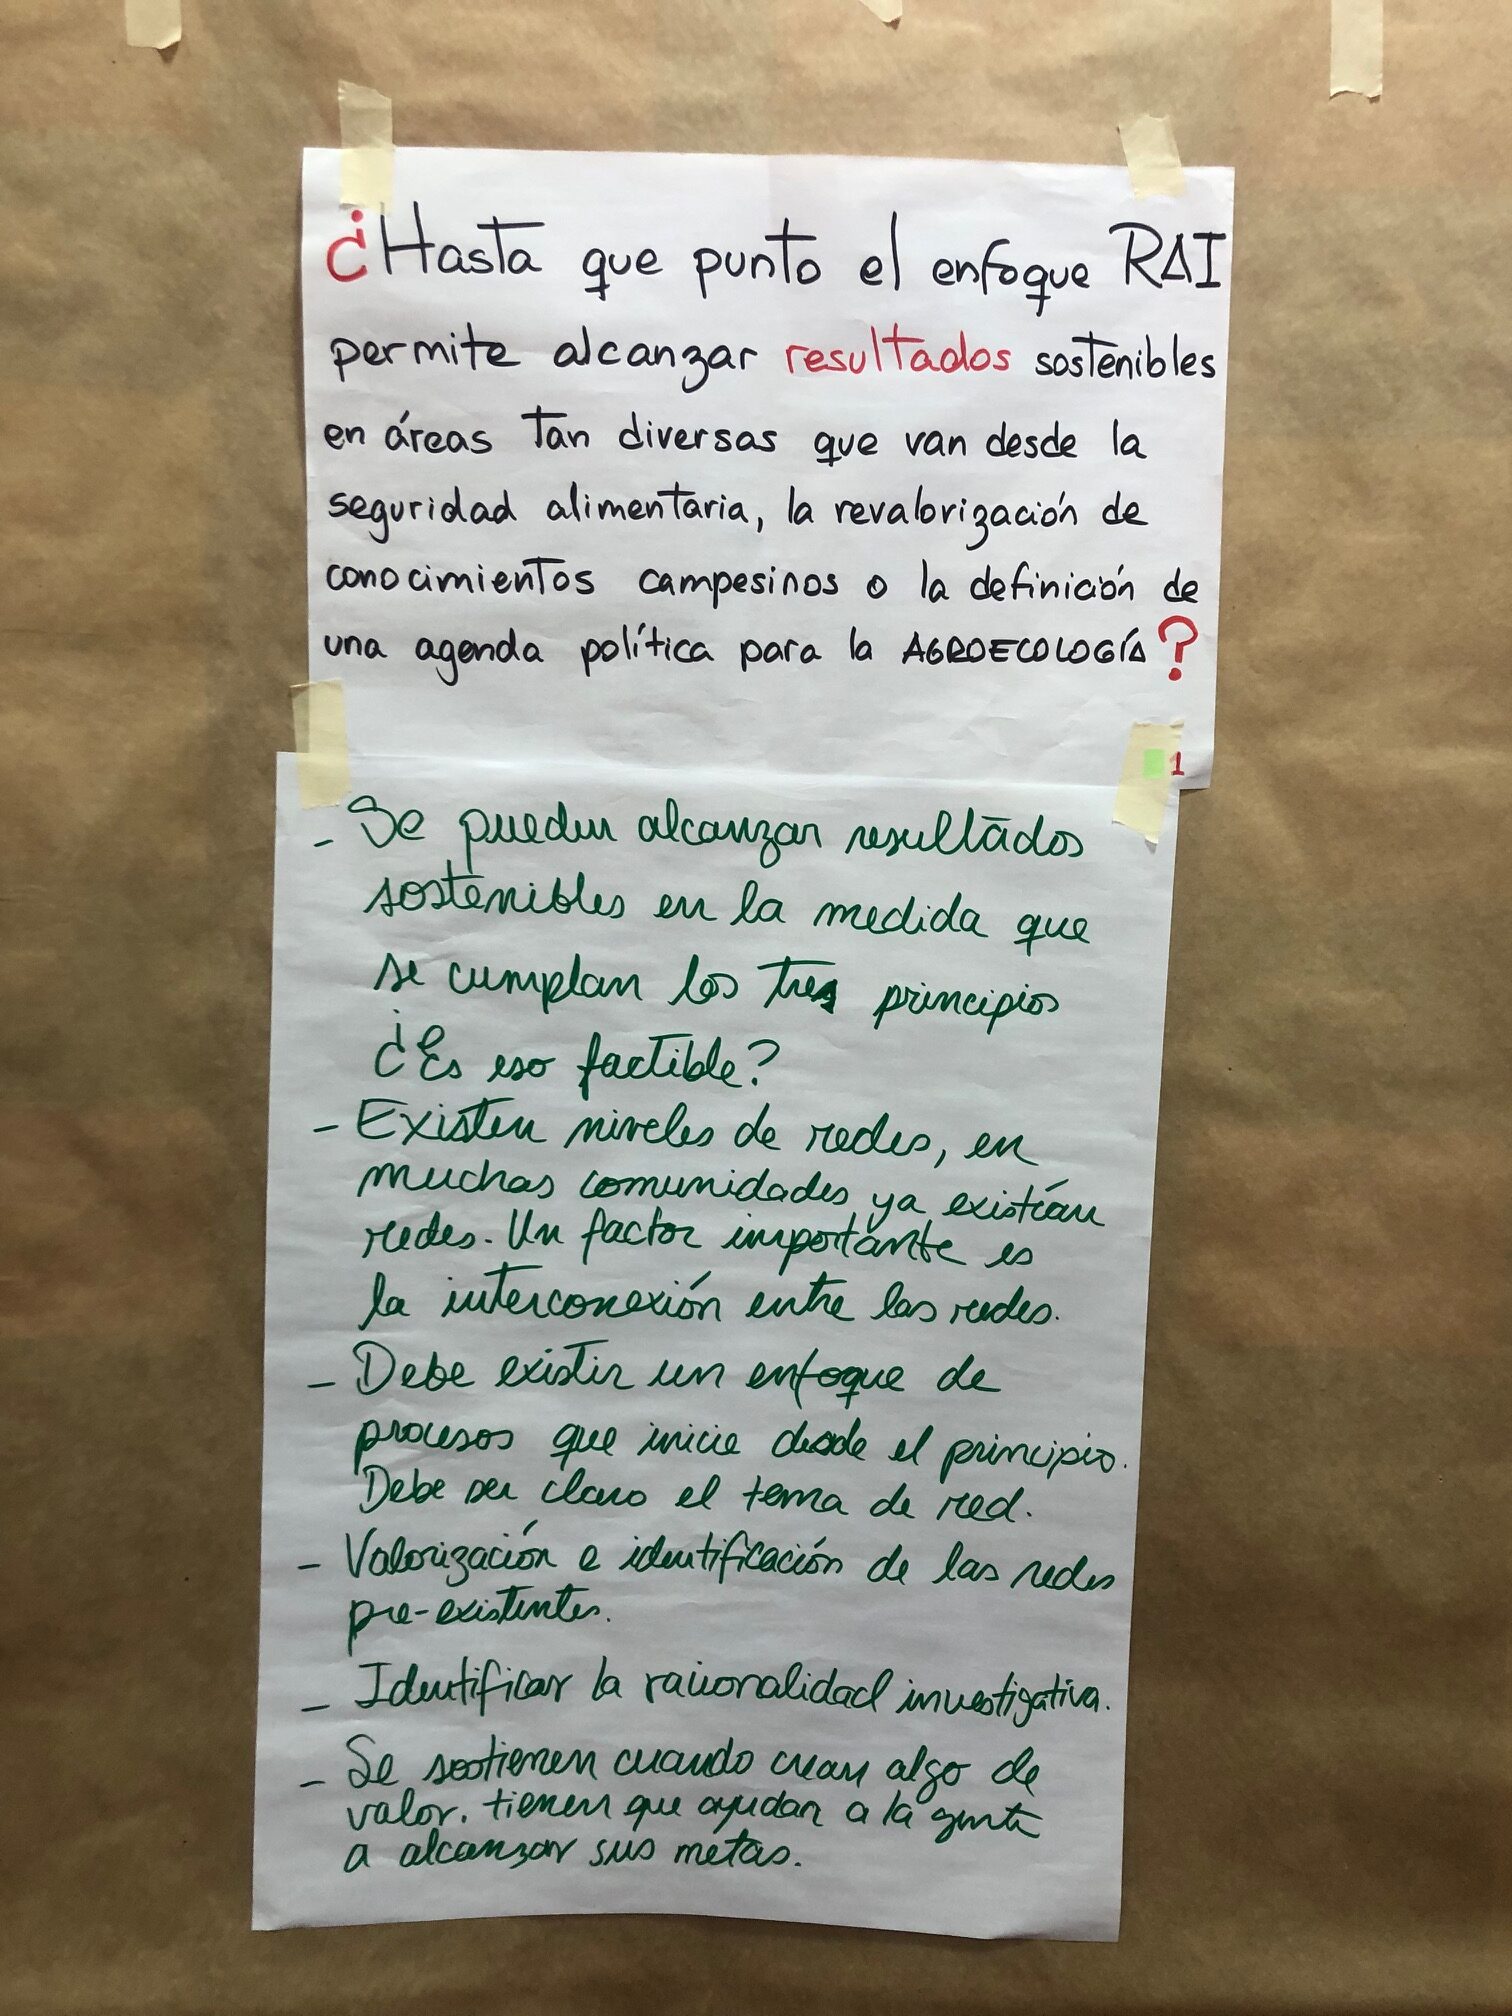 ¿Hasta que punto el enfoque RAI
permite alcanzar resultados sostenibles
en áreas tan diversas que van desde la
seguridad alimentaria, la revalorización de
conocimientos campesinos o la definición de
una agenda política para la AGROECOLOGÍA?
1
- Se pueden alcanzar resultados
sostenibles en la medida que
se cumplan los tres principios
¿Es eso factible?
- Existen niveles de redes, en
muchas comunidades ya existían
redes. Un factor importante es
la interconexión entre las redes.
- Debe existir un enfoque de
procesos que inicie desde el principio.
Debe ser claro el tema de red.
- Valorización e identificación de las redes
pre-existentes.
- Identificar la racionalidad investigativa.
- Se sostienen cuando crean algo de
valor. tienen que ayudar a la gente
a alcanzar sus metas.